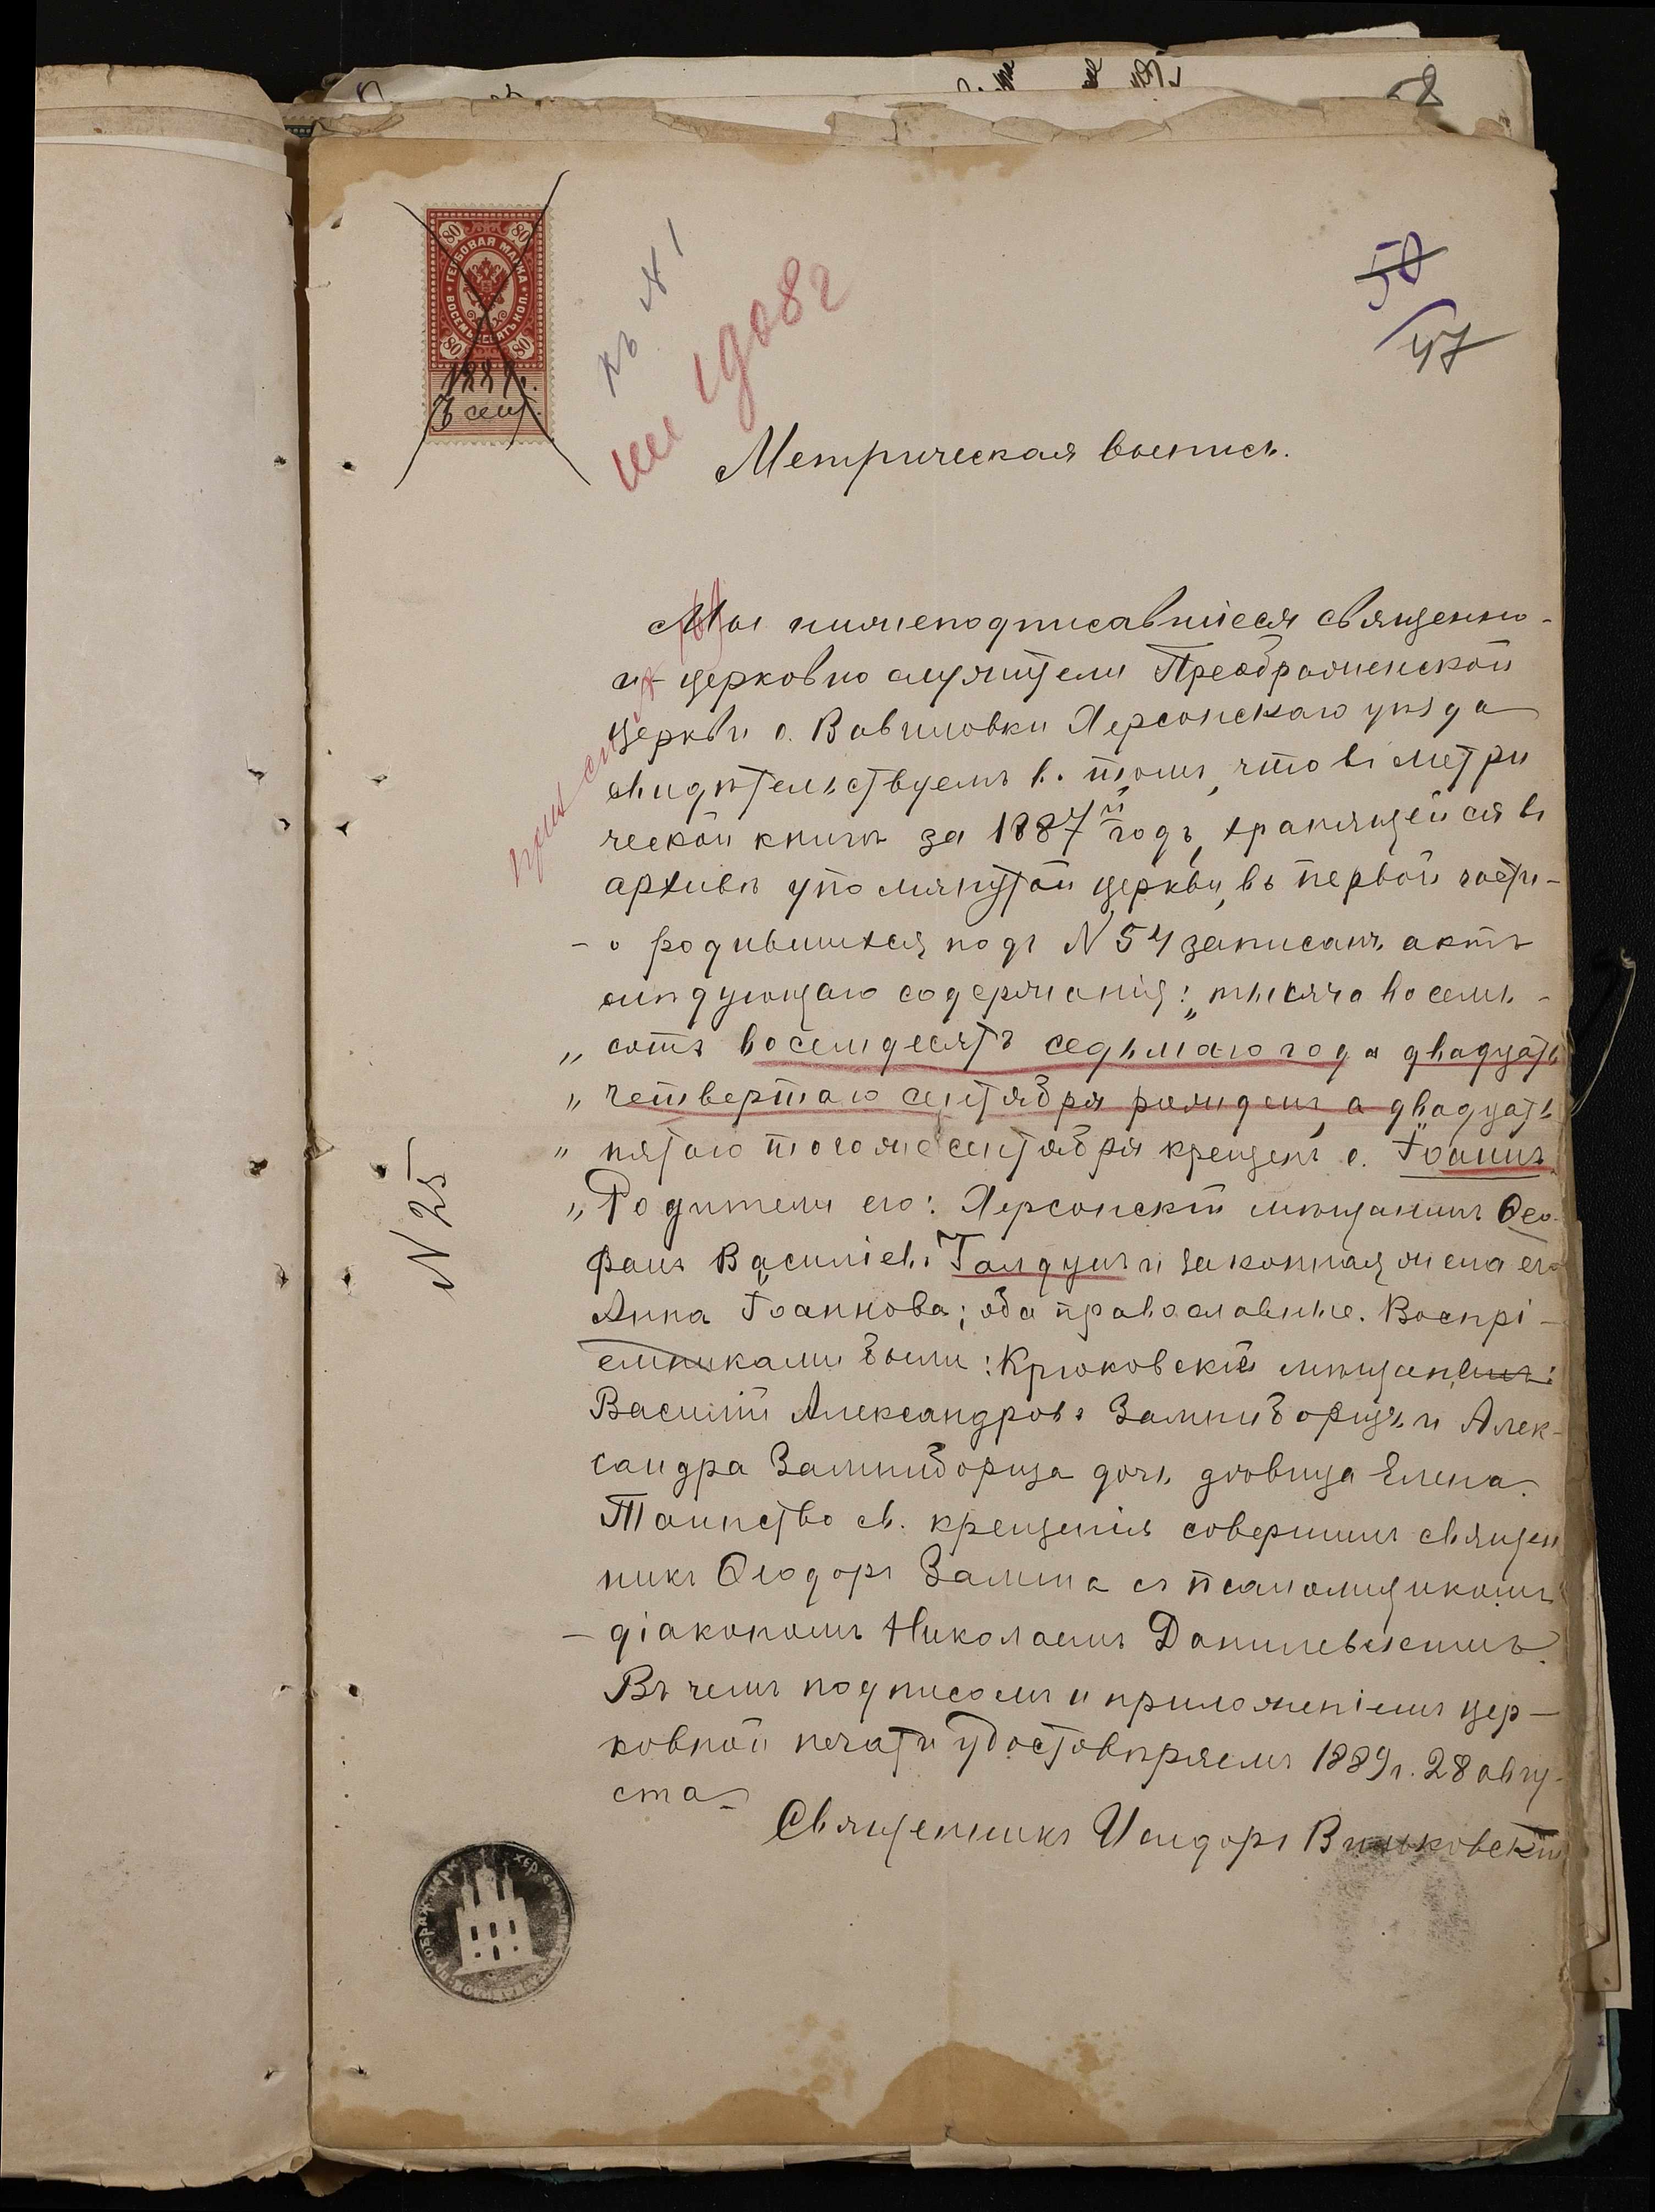 58
80 80
ГЕРБОВАЯ МАРКА
ВОСЕМЬДЕСЯТЪ КОП.
80 80
1889 г.
3 сент.
къ № 1
1908 г
50
47
Метрическая выпись.
Мы нижеподписавшіеся священно-
и церковно служители Преображенской
церкви с. Вавиловки Херсонскаго уѣзда
свидѣтельствуемъ въ томъ, что въ метри
ческой книгѣ за 1887й годъ, хранящейся въ
архивѣ упомянутой церкви, въ первой части-
- о родившихся, подъ N 54 записанъ актъ
слѣдующаго содержанія: „тысяча восемь-
„ сотъ восемдесятъ седьмаго года двадцать
„ четвертаго сентября рожденъ, а двадцать
„ пятаго тогоже сентября крещенъ с. Іоаннъ.
„ Родители его: Херсонскій мѣщанинъ Ѳео-
фанъ Василіевъ Галдунъ и законная жена его
Анна Іоаннова; оба православные. Воспрі-
емниками были: Крюковскій мѣщанинъ:
Василій Александровъ Замниборщъ и Алек-
сандра Замниборща дочь дѣвица Елена.
Таинство св. крещенія совершилъ священ
никъ Ѳеодоръ Замша съ псаломщикомъ
- діакономъ Николаемъ Данилевскимъ.
Въ чемъ подписомъ и приложеніемъ цер-
ковной печати удостовѣряемъ 1889 г. 28 авгу-
ста
Священникъ Исидоръ
N 25